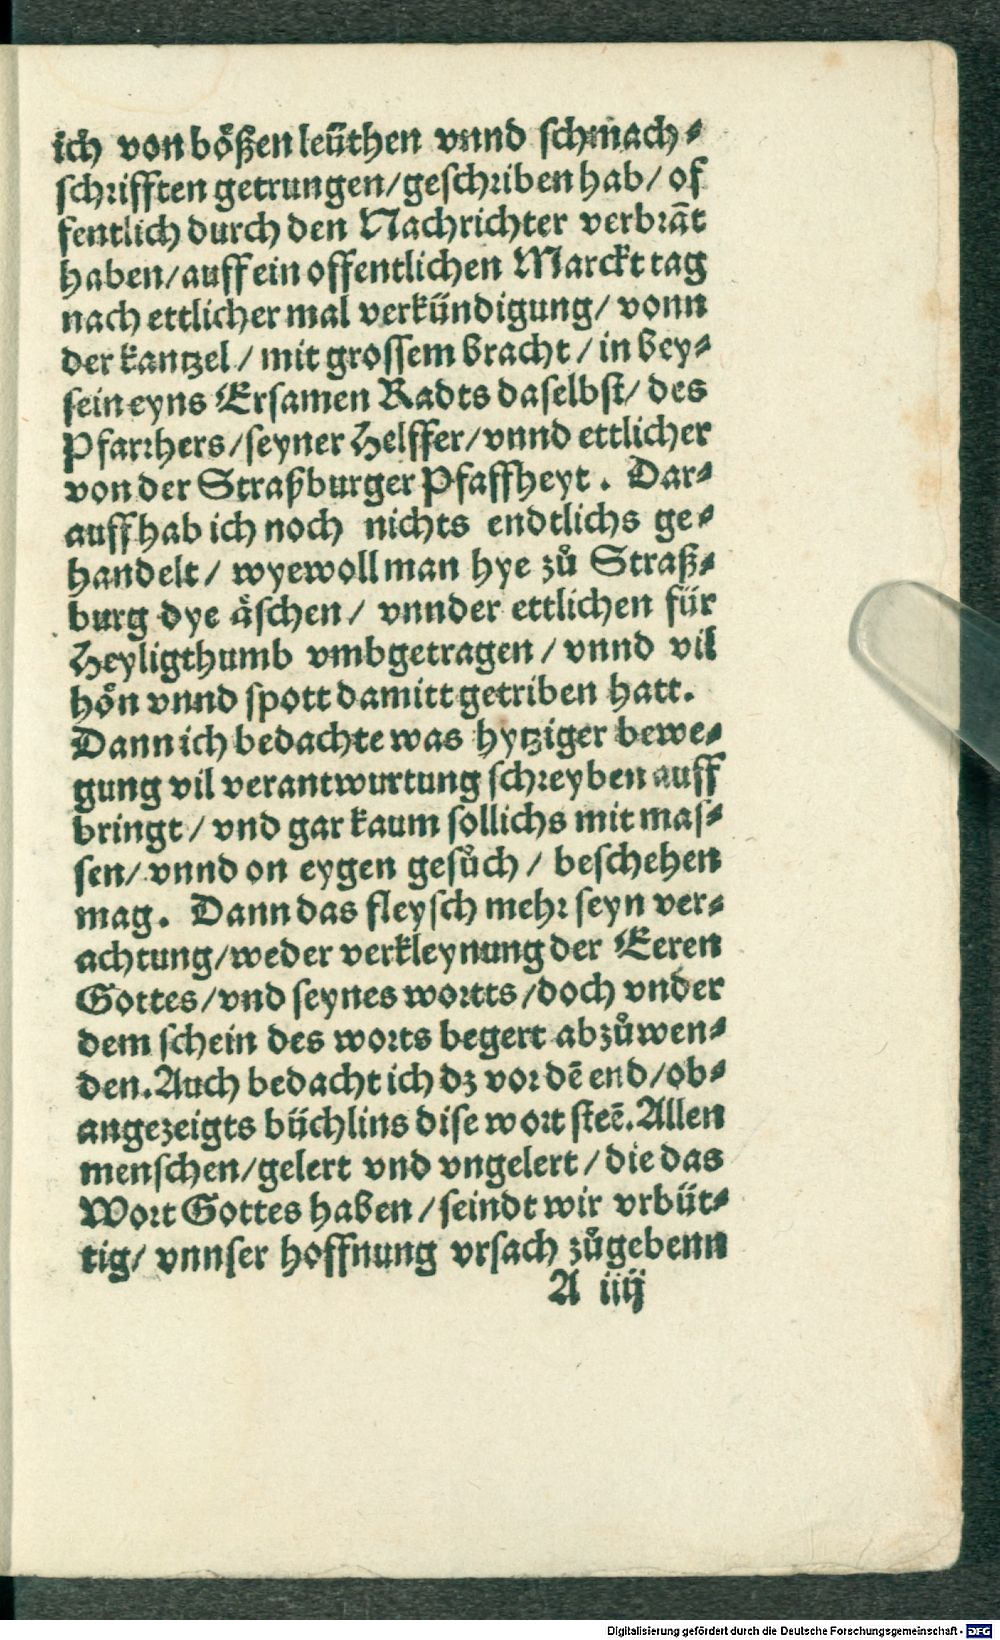 ich von bößen leüthen vnnd schmach⸗
schrifften getrungen/geschriben hab/ of
fentlich durch den Nachrichter verbrāt
haben/auff ein offentlichen Marckt tag
nach ettlicher mal verkündigung/ vonn
der kantzel/ mit grossem bracht/ in bey⸗
sein eyns Ersamen Radts daselbst/ des
Pfarrhers/seyner Helffer/vnnd ettlicher
von der Straßburger Pfaffheyt. Dar⸗
auff hab ich noch nichts endtlichs ge⸗
handelt/ wyewoll man hye zů Straß⸗
burg dye äschen/ vnnder ettlichen für
Heyligthumb vmbgetragen/ vnnd vil
hön vnnd spott damitt getriben hatt.
Dann ich bedachte was hytziger bewe⸗
gung vil verantwurtung schreyben auff
bringt/ vnd gar kaum sollichs mit mas⸗
sen/ vnnd on eygen gesůch/ beschehen
mag. Dann das fleysch mehr seyn ver⸗
achtung/weder verkleynung der Eeren
Gottes/vnd seynes wortts/doch vnder
dem schein des worts begert abzůwen⸗
den. Auch bedacht ich dz vor dē end/ob⸗
angezeigts büchlins dise wort steē. Allen
menschen/gelert vnd vngelert/die das
Wort Gottes haben/seindt wir vrbüt⸗
tig/ vnnser hoffnung vrsach zůgebenn
A iiij
Digitalisierung gefördert durch die Deutsche Forschungsgemeinschaft - DFG